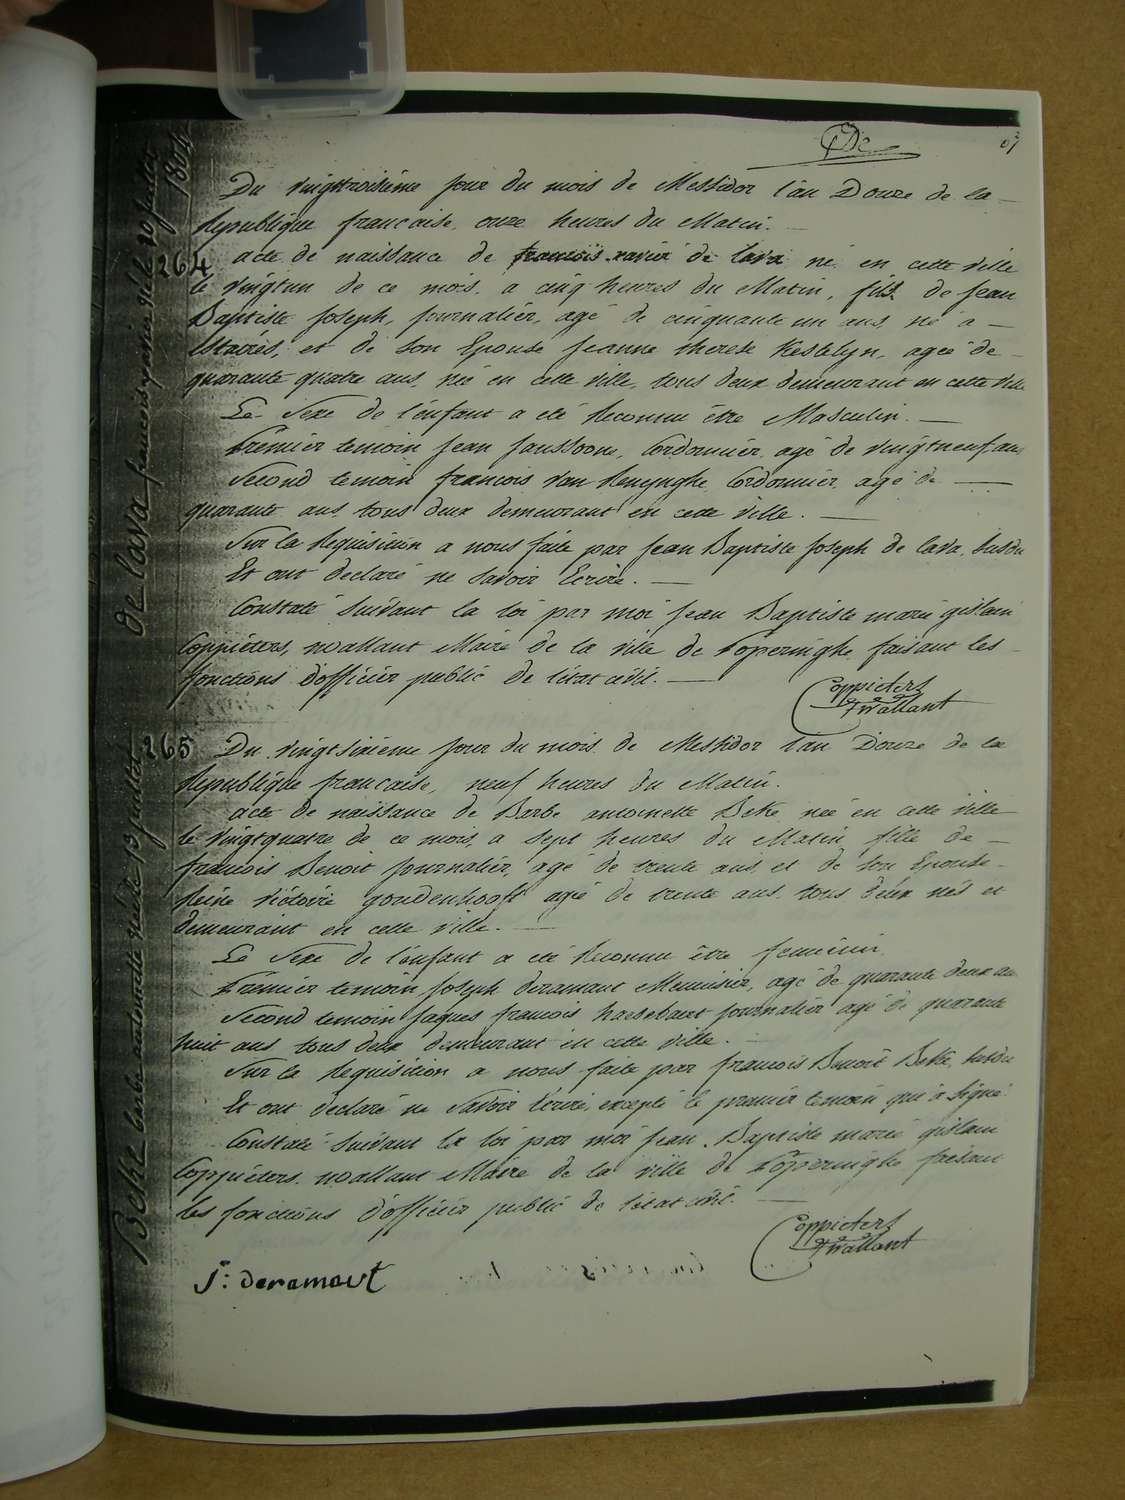 Du vingttroisième jour du mois de Messidor l'an Douze de la
République française, onze heures du Matin.
264 acte de naissance de francois xavier de lava né en cette ville
le vingtun de ce mois a cinq heures du Matin, fils de Jean
Baptiste Joseph, Journalier, agé de cinquante un ans, né a
Estaires, et de son Epouse Jeanne therese Kestelyn, agée de
quarante quatre ans, née en cette ville, tous deux demeurant en cette ville
Le Sexe de l'enfant a eté Reconnu être Masculin.
Premier temoin Jean Janssoone, Cordonnier, agé de vingtneuf ans
Second temoin francois Van Renynghe Cordonnier agé de
quarante ans, tous deux demeurant en cette ville.
Sur la Requisition a nous faite par Jean Baptiste Joseph de lava, susdu
Et ont declaré ne savoir Ecrire.
Constaté Suivant la loi par moi Jean Baptiste marie gislain
Coppieters, wallant Maire de la ville de Poperinghe, faisant les
fonctions d'officier public de l'etat civil.
Coppieters
twallant
265 Du vingtsixieme jour du mois de Messidor l'an Douze de la
République francaise, neuf heures du Matin.
acte de naissance de Barbe antoinette Beke née en cette ville
le vingtquatre de ce mois, a sept heures du Matin fille de
francois Benoit Journalier, agé de trente ans, et de son Epouse
Reine Victoire goudenhooft agée de trente ans, tous deux nés et
demeurant en cette ville.
Le Sexe de l'enfant a eté Reconnu être feminin.
Premier temoin Joseph deramaut Menuisier, agé de quarante deux an
Second temoin Jaques francois haesebaert Journalier agé de quarante
huit ans tous deux demeurant en cette ville.
Sur la Requisition a nous faite par francois Benoit Beke, susdu
Et ont declaré ne savoir Ecrire, excepté le premier temoin qui a signé
Constaté Suivant la loi par moi Jean Baptiste marie gislain
Coppieters, wallant Maire de la ville de Poperinghe faisant
les fonctions d'officier public de l'etat civil.
Coppieters
twallant
J: deramaut
1804
de lava francois xavier né le 20 juillet
Beke barbe antoinette née le 13 juillet